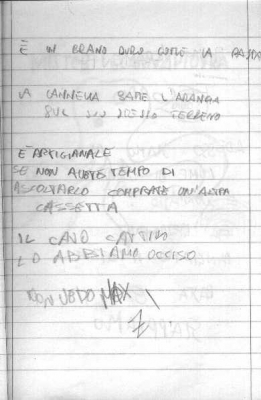 È UN BRANO DURO COME LA
LA CANNELLA BATTE L'ARANCIA
SUL SUO STESSO TERRENO
È ARTIGIANALE
SE NON AVETE TEMPO DI
ASCOLTARLO COMPRATE UN'ALTRA
CASSETTA
IL CAVO CATTIVO
LO ABBIAMO UCCISO
NON VEDO MAX